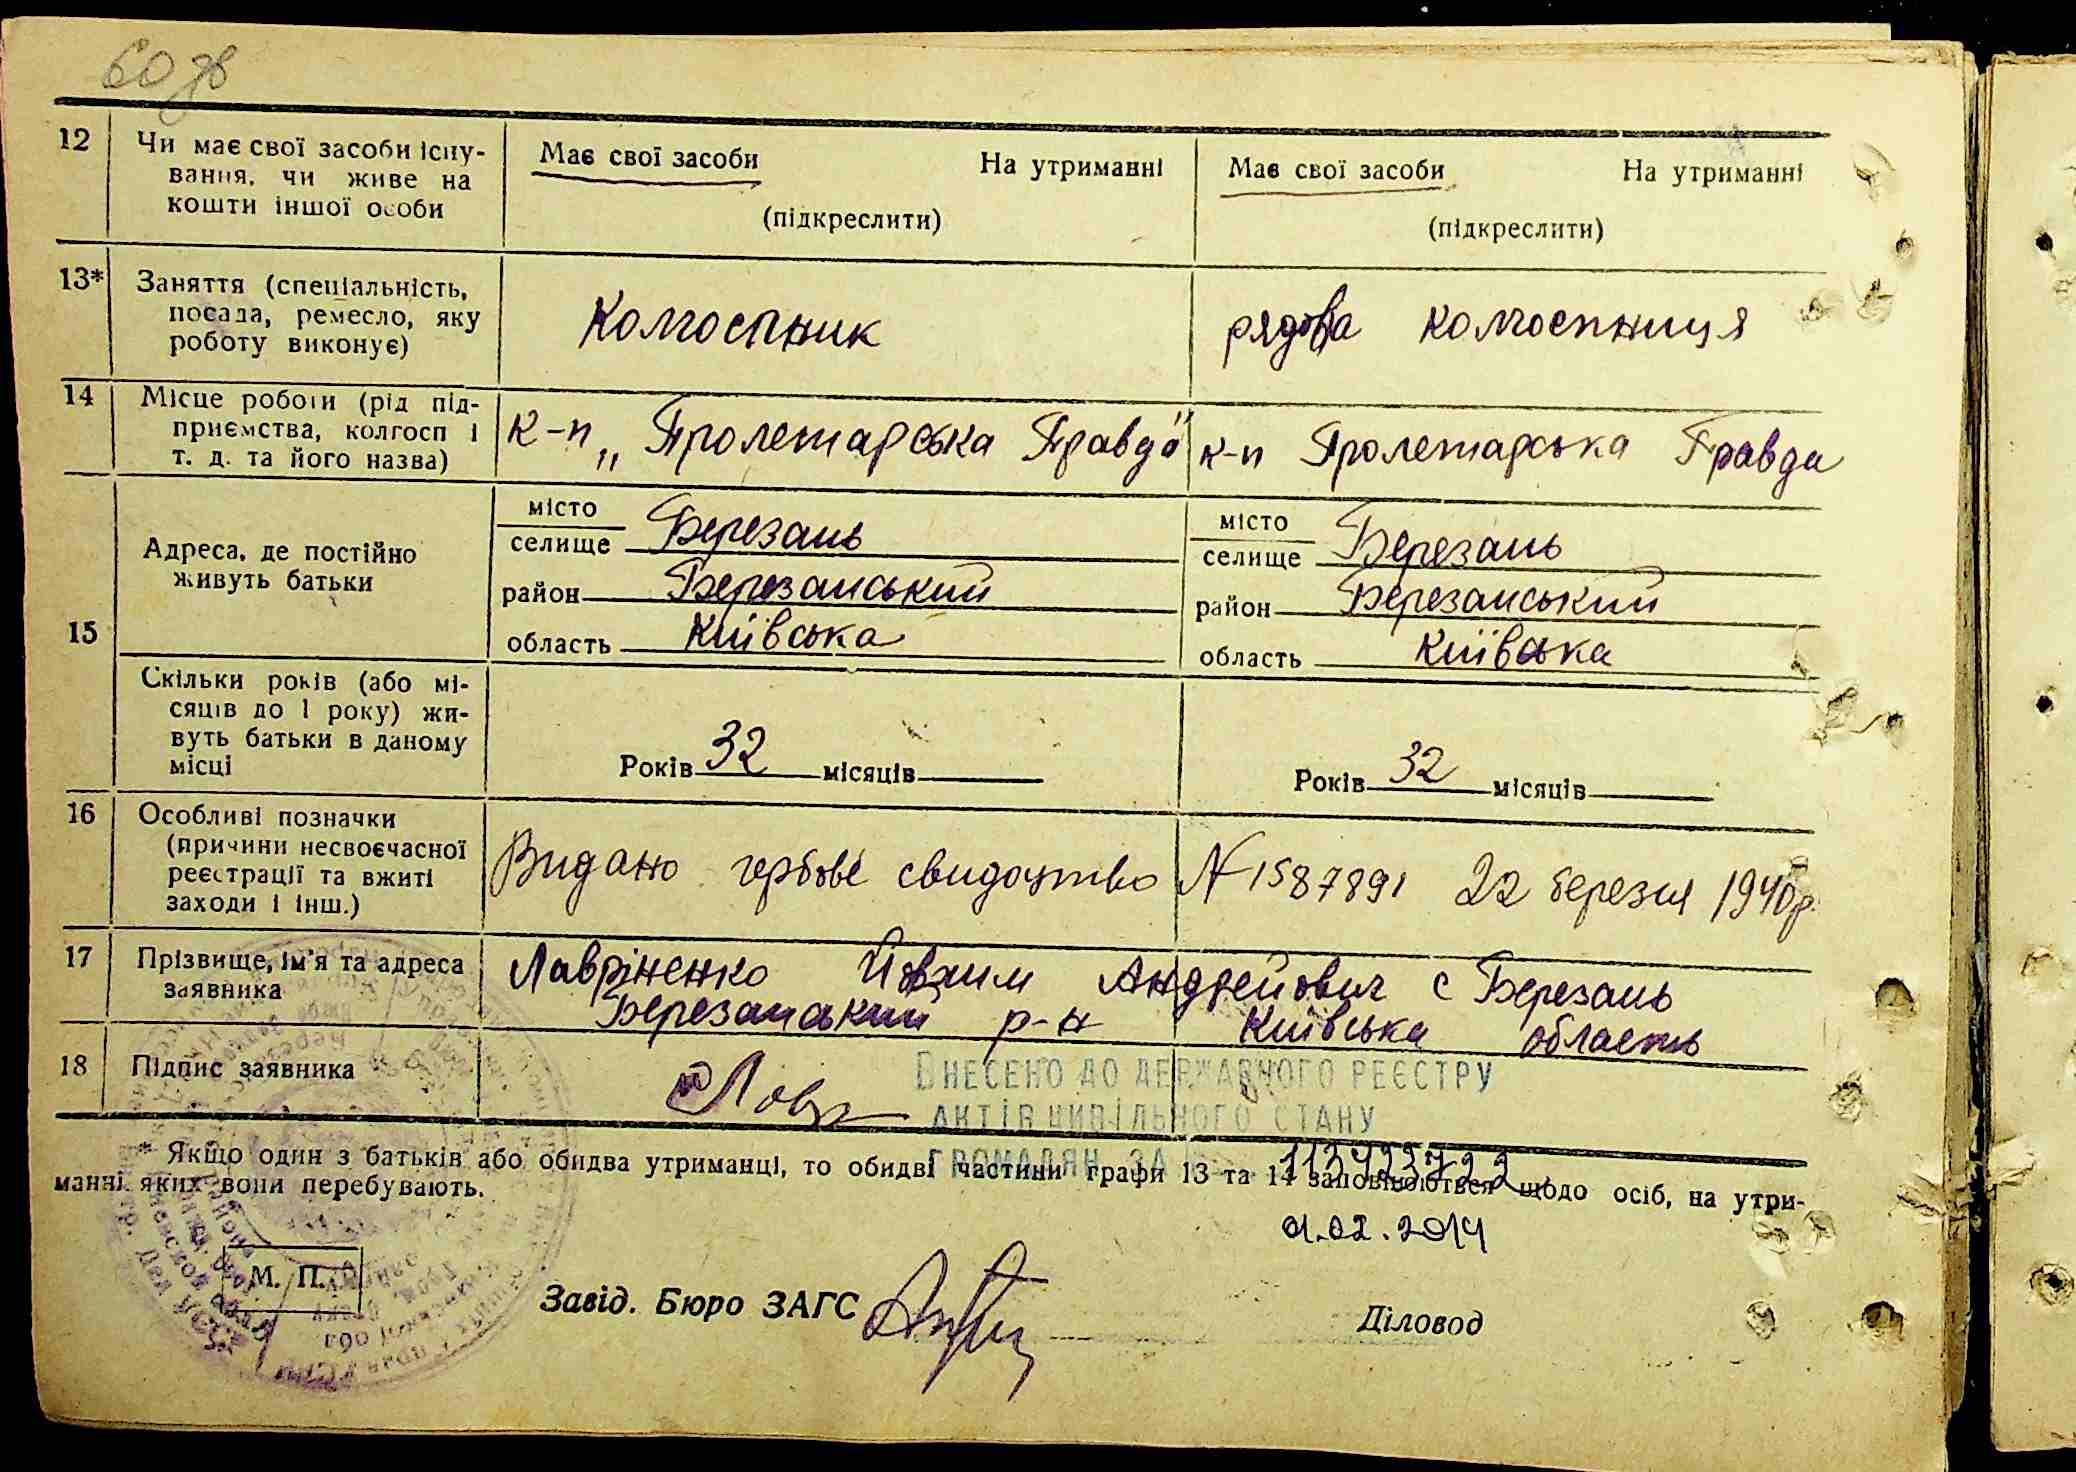 60 зв
12 Чи має свої засоби існу-
вання, чи живе на
кошти іншої особи
Має свої засоби На утриманні
(підкреслити)
Має свої засоби На утриманні
(підкреслити)
13* Заняття (спеціальність,
посада, ремесло, яку
роботу виконує)
Колгоспник
рядова колгоспниця
14 Місце роботи (рід під-
приємства, колгосп і
т. д. та його назва)
к-п „Пролетарська Правда"
к-п Пролетарська Правда
15 Адреса, де постійно
живуть батьки
місто
селище Березань
район Березанський
область Київська
місто
селище Березань
район Березанський
область Київська
Скільки років (або мі-
сяців до 1 року) жи-
вуть батьки в даному
місці
Років 32 місяців
Років 32 місяців
16 Особливі позначки
(причини несвоєчасної
реєстрації та вжиті
заходи і інш.)
Видано гербове свидоцтво N 1587891 22 березня 1940р.
17 Прізвище, ім'я та адреса
заявника
Лавріненко Андрейович с Березань
Березанський р-н Київська область
18 Підпис заявника
Лавр
ВНЕСЕНО ДО ДЕРЖАВНОГО РЕЄСТРУ
АКТІВ ЦИВІЛЬНОГО СТАНУ
ГРОМАДЯН ЗА
* Якщо один з батьків або обидва утриманці, то обидві частини графи 13 та 14 заповнюються щодо осіб, на утри-
манні яких вони перебувають.
01.02.2014
М. П.
Завід. Бюро ЗАГС
Діловод